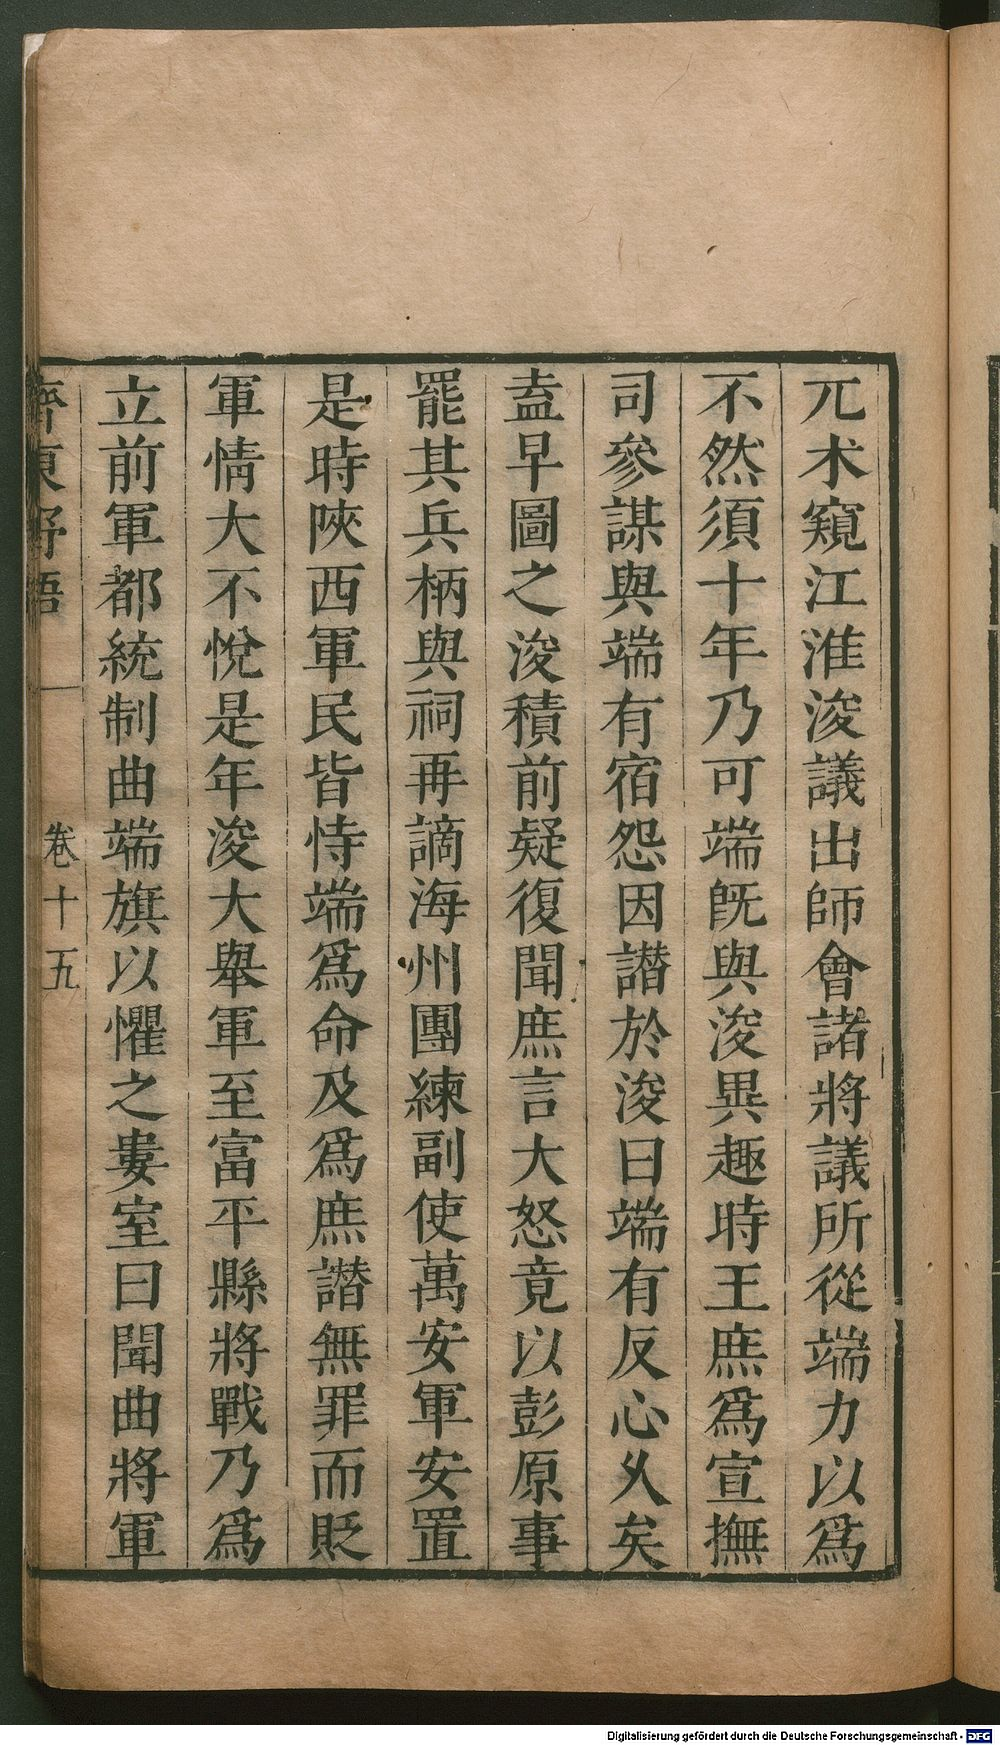 兀术窺江淮浚議出師會諸將議所從端力以爲
不然須十年乃可端旣與浚異趣時王庶爲宣撫
司參謀與端有宿怨因譖於浚曰端有反心久矣
盍早圖之浚積前疑復聞庶言大怒竟以彭原事
罷其兵柄與祠再謫海州團練副使萬安軍安置
是時陝西軍民皆恃端爲命及爲庶譖無罪而貶
軍情大不悅是年浚大舉軍至富平縣將戰乃爲
立前軍都統制曲端旗以懼之婁室曰聞曲將軍
齊東野語 卷十五
Digitalisierung gefördert durch die Deutsche Forschungsgemeinschaft - DFG